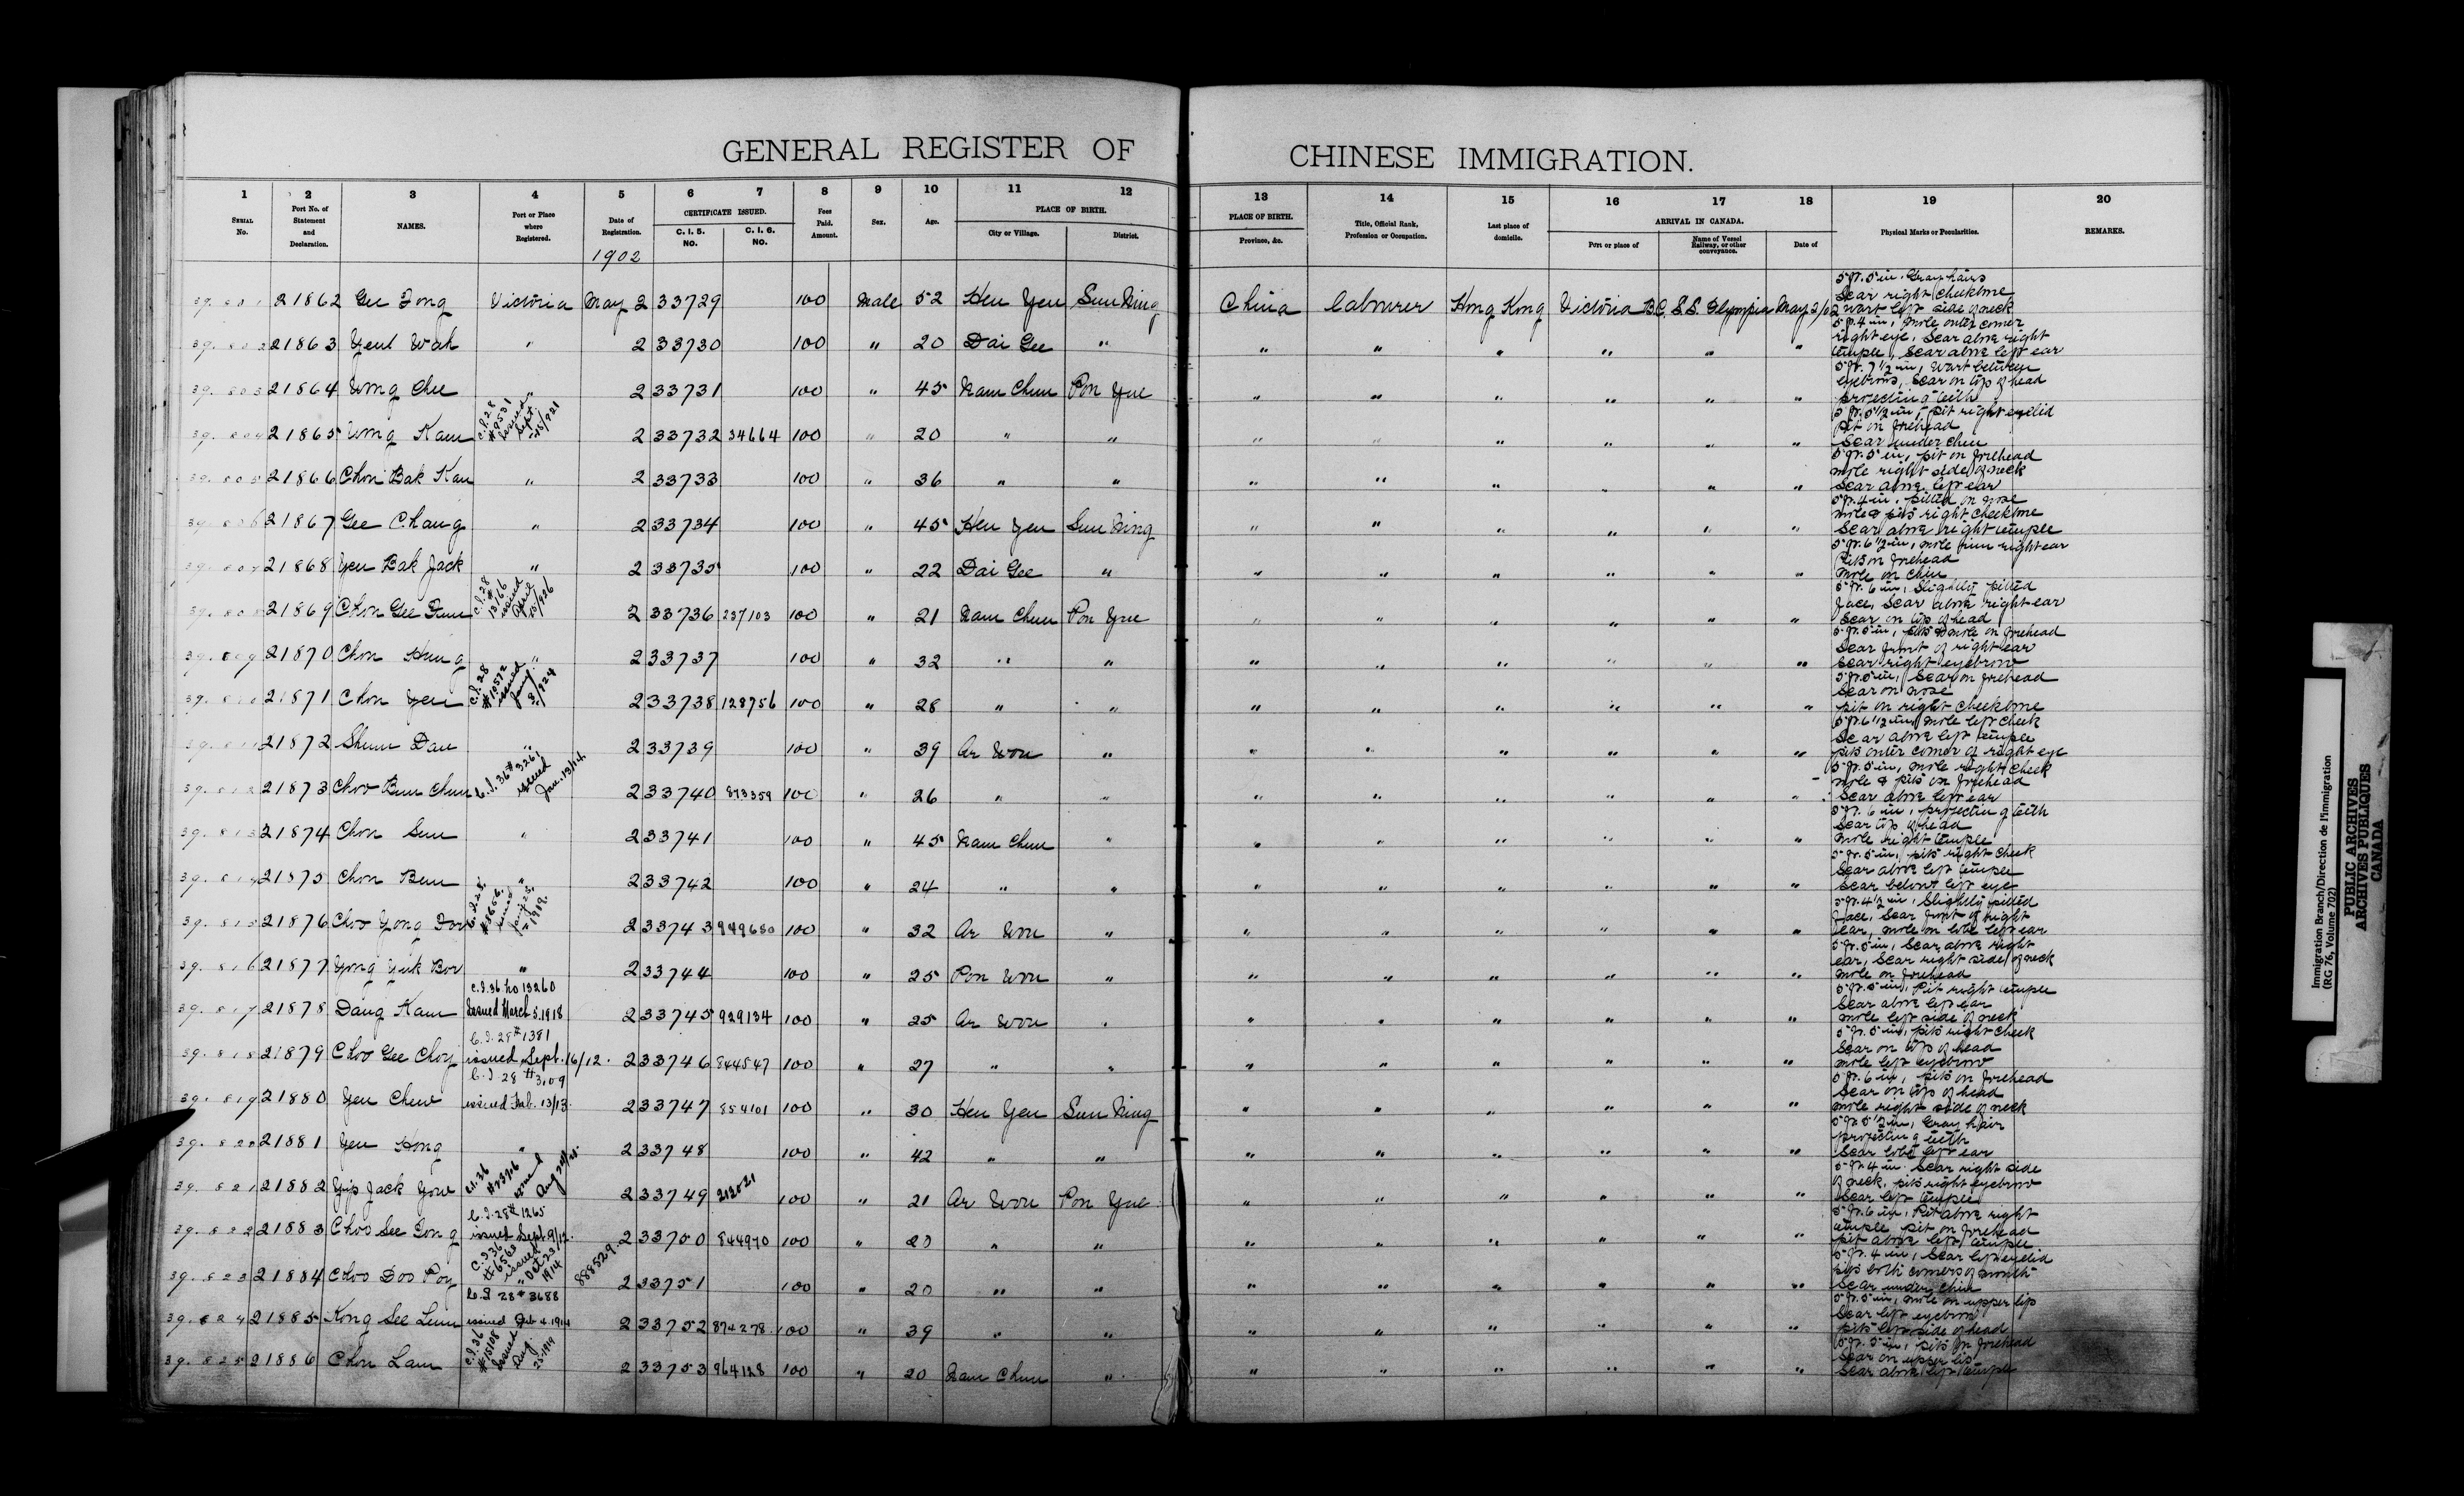 GENERAL REGISTER OF CHINESE IMMIGRATION.
1 2 3 4 5 6 7 8 9 10 11 12 13 14 15 16 17 18 19 20
SERIAL No. Port No. of Statement and Declaration. NAMES. Port or Place where Registered. Date of Registration. CERTIFICATE ISSUED. C. I. 5. NO. C. I. 6. NO. Fees Paid. Amount. Sex. Age. PLACE OF BIRTH. City or Village. District. PLACE OF BIRTH. Province, &c. Title, Official Rank, Profession or Occupation. Last place of domicile. ARRIVAL IN CANADA. Port or place of Name of Vessel Railway, or other conveyance. Date of Physical Marks or Peculiarities. REMARKS.
1902
21862 Gee Fong Victoria May 2 33729 100 Male 52 Hen Yen Sun Ning China Labourer Hong Kong Victoria B.C. S.S. Olympia May 2/02 5 ft. 5 in. Gray hairs Scar right cheekbone wart left side of neck
21863 Yeut Wah " 2 33730 100 " 20 Dai Gee " " " " " " " 5 ft. 4 in, mole outer corner right eye, Scar above right temple, Scar above left ear
21864 Wong Chu " 2 33731 100 " 45 Nam Chun Pon Yue " " " " " " 5 ft. 7 1/2 in, wart between eyebrows, Scar on top of head projecting teeth
21865 Wong Kam C.I.28 #9531 issued Sept. 15/921 2 33732 34664 100 " 20 " " " " " " " " 5 ft. 5 1/2 in, pit right eyelid pit on forehead Scar under chin
21866 Chon Bak Kan " 2 33733 100 " 36 " " " " " " " " 5 ft. 5 in, pit on forehead mole right side of neck Scar above left ear
21867 Gee Chang " 2 33734 100 " 45 Hen Yen Sun Ning " " " " " " 5 ft. 4 in, pitted on nose mole & pits right cheekbone Scar above right temple
21868 Yen Bak Jack " 2 33735 100 " 22 Dai Gee " " " " " " " 5 ft. 6 1/2 in, mole rim right ear Pits on forehead mole on chin
21869 Chon Gee Fun C.I.28 #13166 issued April 15/926 2 33736 237103 100 " 21 Nam Chun Pon Yue " " " " " " 5 ft. 6 in, Slightly pitted face, Scar above right ear Scar on top of head
21870 Chon Hung " 2 33737 100 " 32 " " " " " " " " 5 ft. 5 in, pits & mole on forehead Scar front of right ear Scar right eyebrow
21871 Chon Yen C.I.28 #12572 issued Jany 8/924 2 33738 128756 100 " 28 " " " " " " " " 5 ft. 5 in, Scar on forehead Scar on nose pit on right cheekbone
21872 Shum Dan " 2 33739 100 " 39 Ar Won " " " " " " " 5 ft. 6 1/2 in, mole left cheek Scar above left temple pits outer corner of right eye
21873 Choo Bun Chun C.I. 36 #3261 issued Jan. 13/14. 2 33740 873359 100 " 26 " " " " " " " " 5 ft. 5 in, mole right cheek mole & pits on forehead Scar above left ear
21874 Chon Sun " 2 33741 100 " 45 Nam Chun " " " " " " " 5 ft. 6 in, projecting teeth Scar top of head mole right temple
21875 Chon Bun " 2 33742 100 " 24 " " " " " " " " 5 ft. 5 in, pits right cheek Scar above left temple Scar below left eye
21876 Choo Yong Dow C.I.28. #8656. issued Jany 23, 1919. 2 33743 949650 100 " 32 Ar Won " " " " " " " 5 ft. 4 1/2 in, Slightly pitted face, Scar front of right ear, mole on lobe left ear
21877 Yong Yuk Bow " 2 33744 100 " 25 Pon Won " " " " " " " 5 ft. 5 in, Scar above right ear, Scar right side of neck mole on forehead
21878 Dang Kam C.I.36 No 13260 Issued March 5.1918 2 33745 929134 100 " 25 Ar Won " " " " " " " 5 ft. 5 in, Pit right temple Scar above left ear mole left side of neck
21879 Choo Gee Choy C.I. 28 #1381 issued Sept. 16/12. 2 33746 844547 100 " 27 " " " " " " " " 5 ft. 5 in, pits right cheek Scar on top of head mole left eyebrow
21880 Yen Chew C.I. 28 #3,09 issued Feb. 13/13. 2 33747 854101 100 " 30 Hen Yen Sun Ning " " " " " " 5 ft. 6 in, pits on forehead Scar on top of head mole right side of neck
21881 Yen Hong " 2 33748 100 " 42 " " " " " " " " 5 ft. 5 1/2 in, Gray hair projecting teeth Scar lobe left ear
21882 Yip Jack Yow C.I.36 issued Aug 2 33749 212021 100 " 21 Ar Won Pon Yue " " " " " " 5 ft. 4 in. Scar right side of neck, pits right eyebrow Scar left temple
21883 Choo See Gong C.I. 28 #1265 issued Sept. 9/12. 2 33750 844970 100 " 23 " " " " " " " " 5 ft. 6 in, Pit above right temple pit on forehead pit above left temple
21884 Choo Doo Poy C.I.36 #6563 issued Oct 23/1914 888529. 2 33751 100 " 20 " " " " " " " " 5 ft. 4 in, Scar left eyelid pits both corners of mouth Scar under chin
21885 Kong See Lum C.I 28 #3688 issued Feb 4. 1914 2 33752 874278 100 " 39 " " " " " " " " 5 ft. 5 in, mole on upper lip Scar left eyebrow pits left side of head
21886 Chon Lam C.I.36 #15108 Issued Aug. 25-1919 2 33753 964128 100 " 20 Nam Chun " " " " " " " 5 ft. 5 in, pits on forehead Scar on upper lip Scar above left temple
Immigration Branch/Direction de l'immigration
(RG 76, Volume 7022)
PUBLIC ARCHIVES
ARCHIVES PUBLIQUES
CANADA